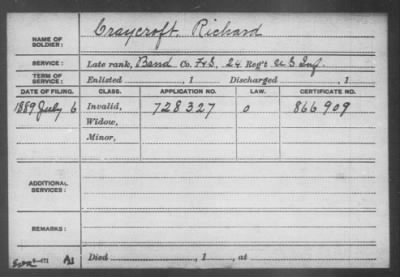 NAME OF SOLDIER: Craycroft, Richard
SERVICE: Late rank, Band Co. F&S, 24 Reg't U S Inf.
TERM OF SERVICE: Enlisted , 1 Discharged , 1
DATE OF FILING. CLASS. APPLICATION NO. LAW. CERTIFICATE NO.
1889 July 6 Invalid, 728327 0 866909
Widow,
Minor,
ADDITIONAL SERVICES:
REMARKS:
Died , 1 , at